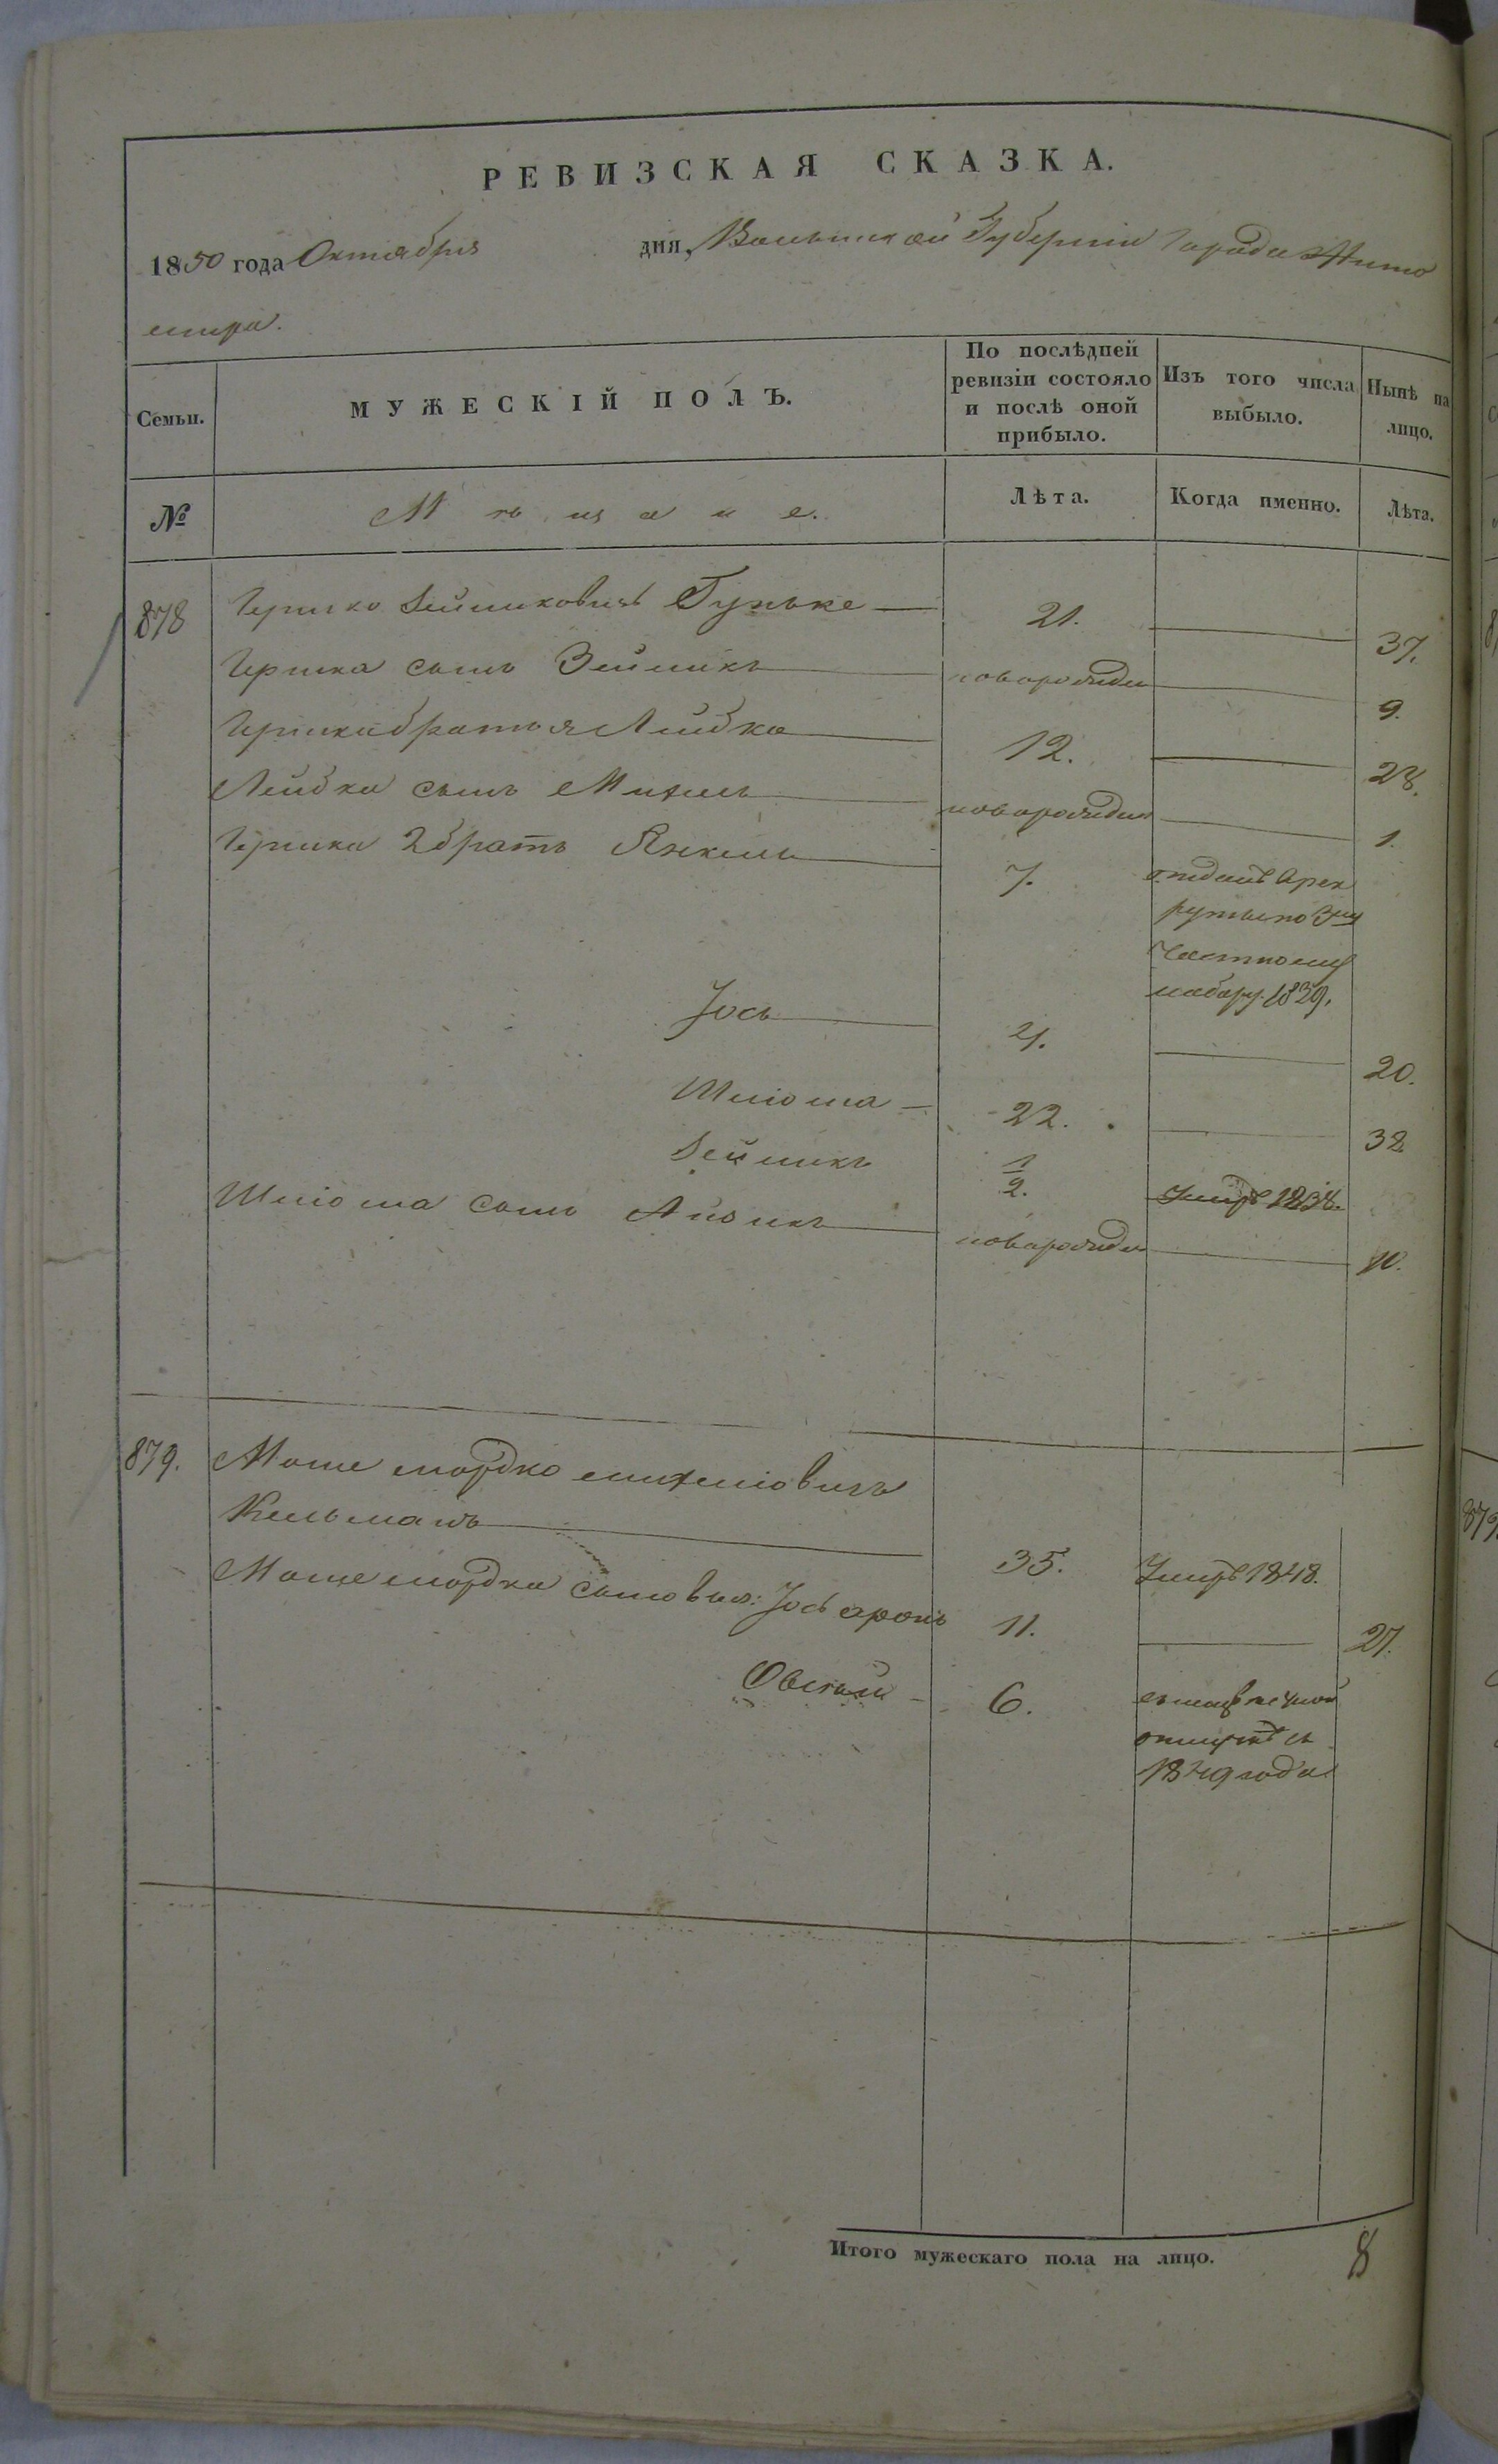 РЕВИЗСКАЯ СКАЗКА.
1850 года Октября дня, Волынской Губерніи Города Жито
мира.
Семьи. МУЖЕСКІЙ ПОЛЪ. По послѣдней ревизіи состояло и послѣ оной прибыло. Изъ того числа выбыло. Нынѣ на лицо.
№ Мѣщане. Лѣта. Когда именно. Лѣта.
878 Гершко Зейликовичъ 21. 37.
Гершка сынъ Зейликъ новорожден 9.
Гершка братья Лейбко 12. 28.
Лейбка сынъ Михель новорожден 1.
Гершка 2 братъ Янкель 7. отданъ в рек
руты по 3му
частному
набору 1839.
Іось 4. 20.
Шліома 22. 38
Зейликъ 1/2. Умеръ 1838.
Шліома сынъ новорожден 10.
879. Моше мордко михеліовичъ
Кельманъ 35. Умеръ 1848.
Моше мордка сыновья: Іось аронъ 11. 27.
6.
1849 года
Итого мужескаго пола на лицо. 8